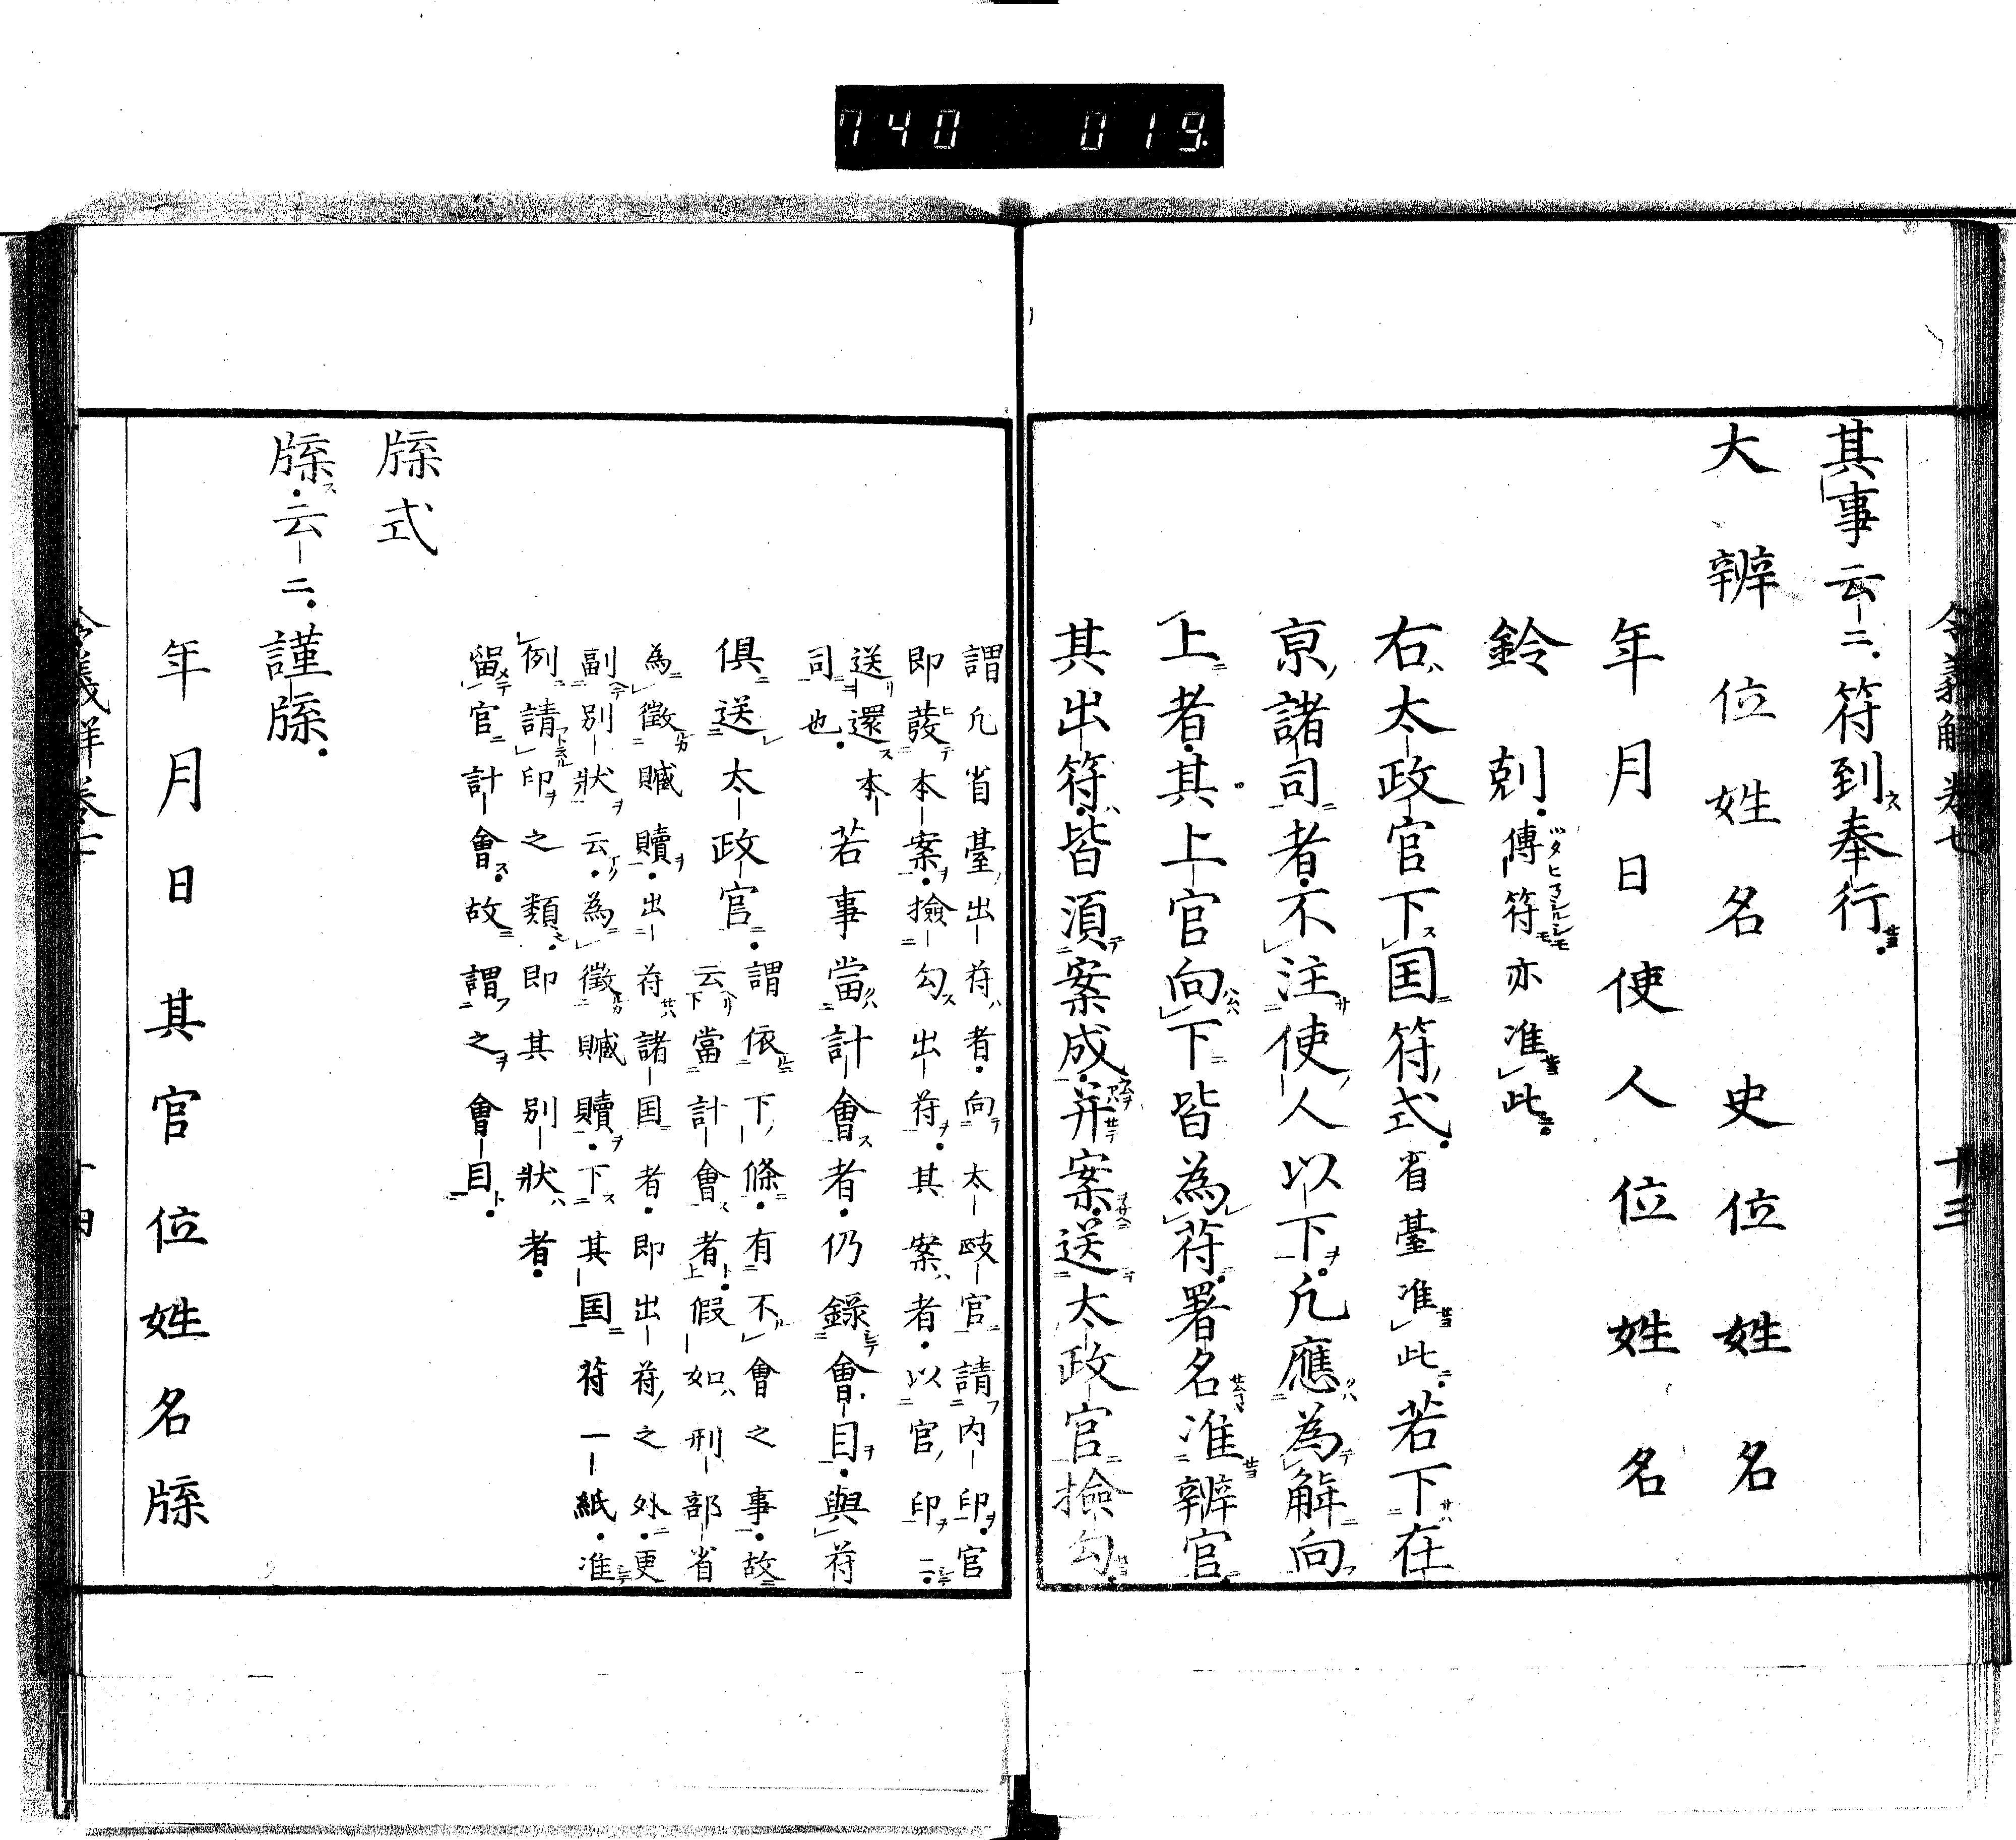 740 019
令義解卷七 十三
其事云二符到奉行
大辨位姓名 史位姓名
年月日使人位姓名
鈴剋傳符亦准此
右太政官下国符式省臺准此若下在
京諸司者不注使人以下凡應為解向
上者其上官向下皆為符署名准辨官
其出符皆須案成并案送太政官撿勾
謂凡省臺出符者向太政官請内印官
即發本案撿勾出符其案者以官印二
送還本
司也
若事當計會者仍錄會目與符
俱送太政官
謂依下條有不會之事故
云當計會者假如刑部省
為徵贓贖出符諸国者即出符之外更
副別狀云為徵贓贖下其国符一紙准
例請印之類即其別狀者
留官計會故謂之會目
牒式
牒云二謹牒
年月日其官位姓名牒